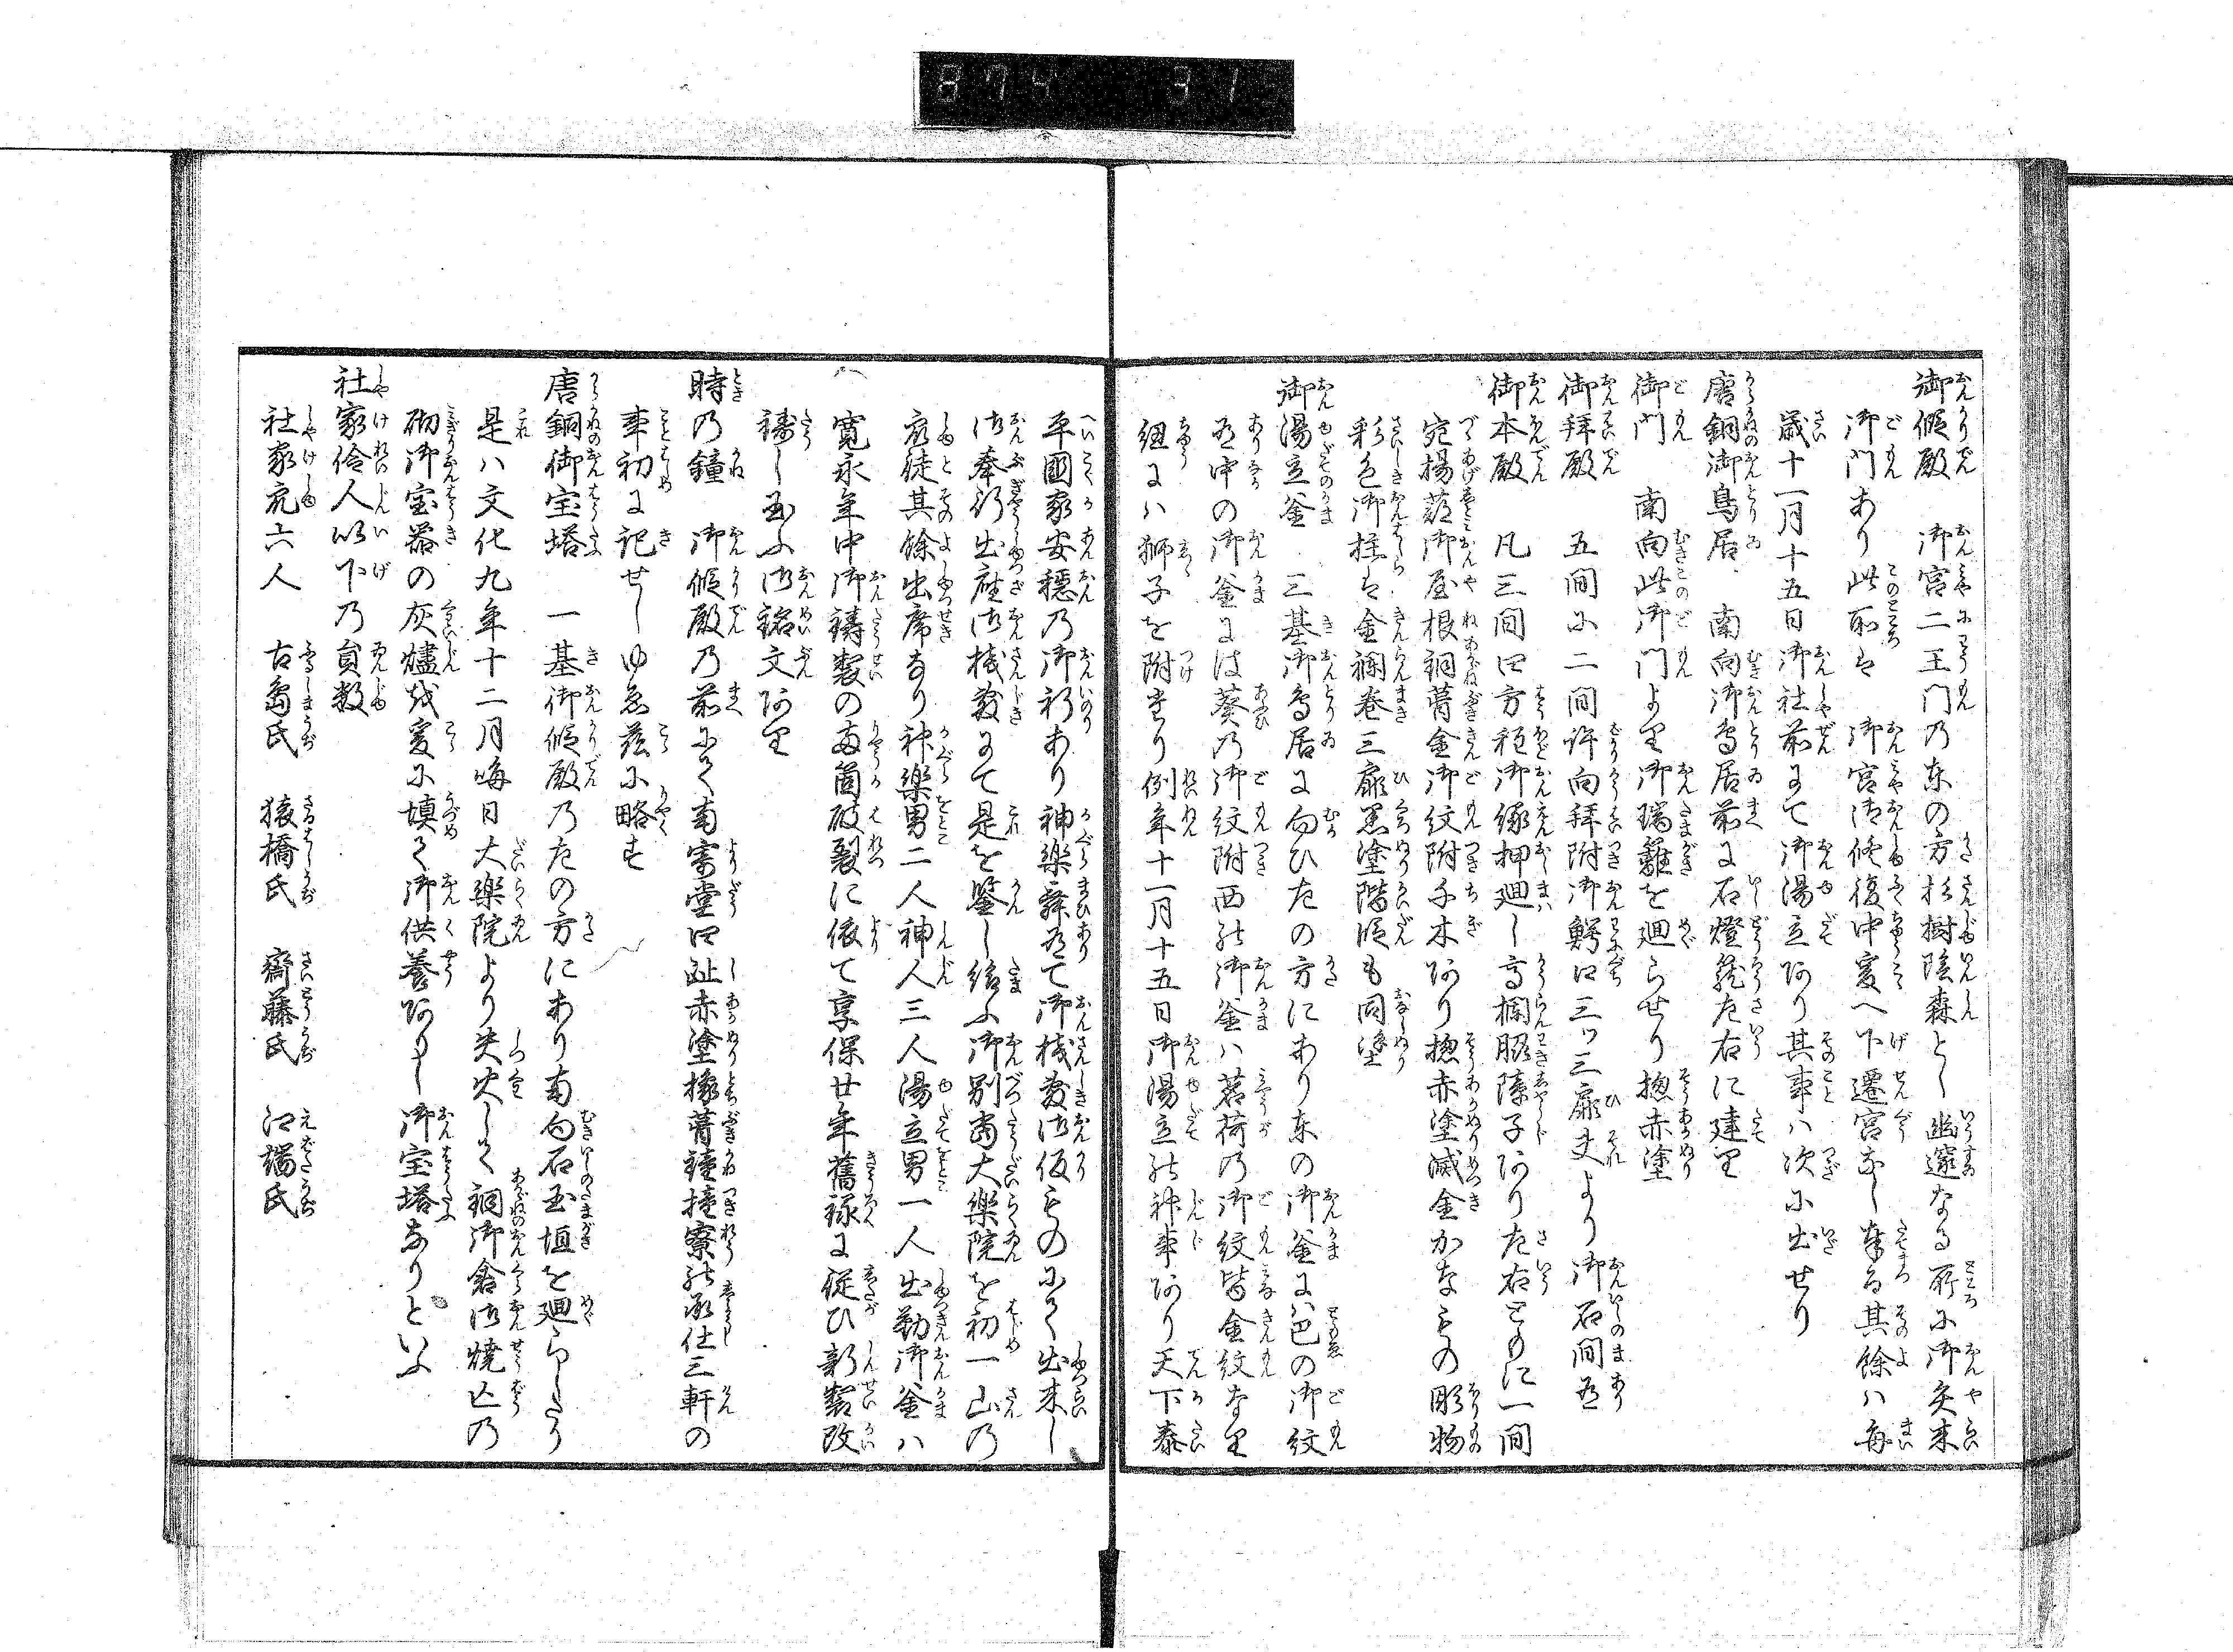 874 31
御仮殿 御宮二王门乃东の方杉樹陰森とし幽邃なる所に御矢来
御门あり此所は 御宮御修復中爰へ下遷宮なし奉る其餘ハ毎
歳十一月十五日御社前にて御湯立あり其事ハ次に出せり
唐銅御鳥居 南向御鳥居前に石燈籠左右に建り
御門 南向此御门より御瑞籬を廻らせり惣赤塗
御拜殿 五间に二间許向拜附御鰐口三ツ三扉夫より御石间有
御本殿 凡三间四方程御縁押廻し高欄脇障子あり左右ともに一间
宛揚蔀御屋根銅葺金御紋附千木あり惣赤塗滅金かなもの彫物
彩色御柱は金襴巻三扉黒塗階段も同塗
御湯立釜 三基御鳥居に向ひ左の方にあり东の御釜には巴の御紋
有中の御釜には葵乃御紋附西の御釜ハ茗荷の御紋皆金紋なり
紐にハ獅子を附たり例年十一月十五日御湯立の神事あり天下泰
平國家安穏乃御祈あり神楽舞有て御棧敷御仮ものにて出来し
御奉行出座御棧敷にて是を鑒し給ふ御別當大楽院を初一山の
衆徒其餘出席なり神楽男二人神人三人湯立男一人出勤御釜ハ
寛永年中御鋳製の両箇破裂に依て享保廿年舊禄に従ひ新製改
鋳し玉ふ御銘文あり
時の鐘 御仮殿乃前にて南寄堂四趾赤塗椽葺鐘撞寮の承仕三軒の
事初に記せしゆゑ茲に略す
唐銅御宝塔 一基御仮殿乃左の方にあり南向石玉垣を廻らしたり
是ハ文化九年十二月晦日大楽院より失火して銅御倉御焼亡乃
砌御宝器の灰燼を爰に填て御供養ありし御宝塔なりといふ
社家伶人以下乃員数
社家衆六人 古島氏 猿橋氏 齋藤氏 江端氏